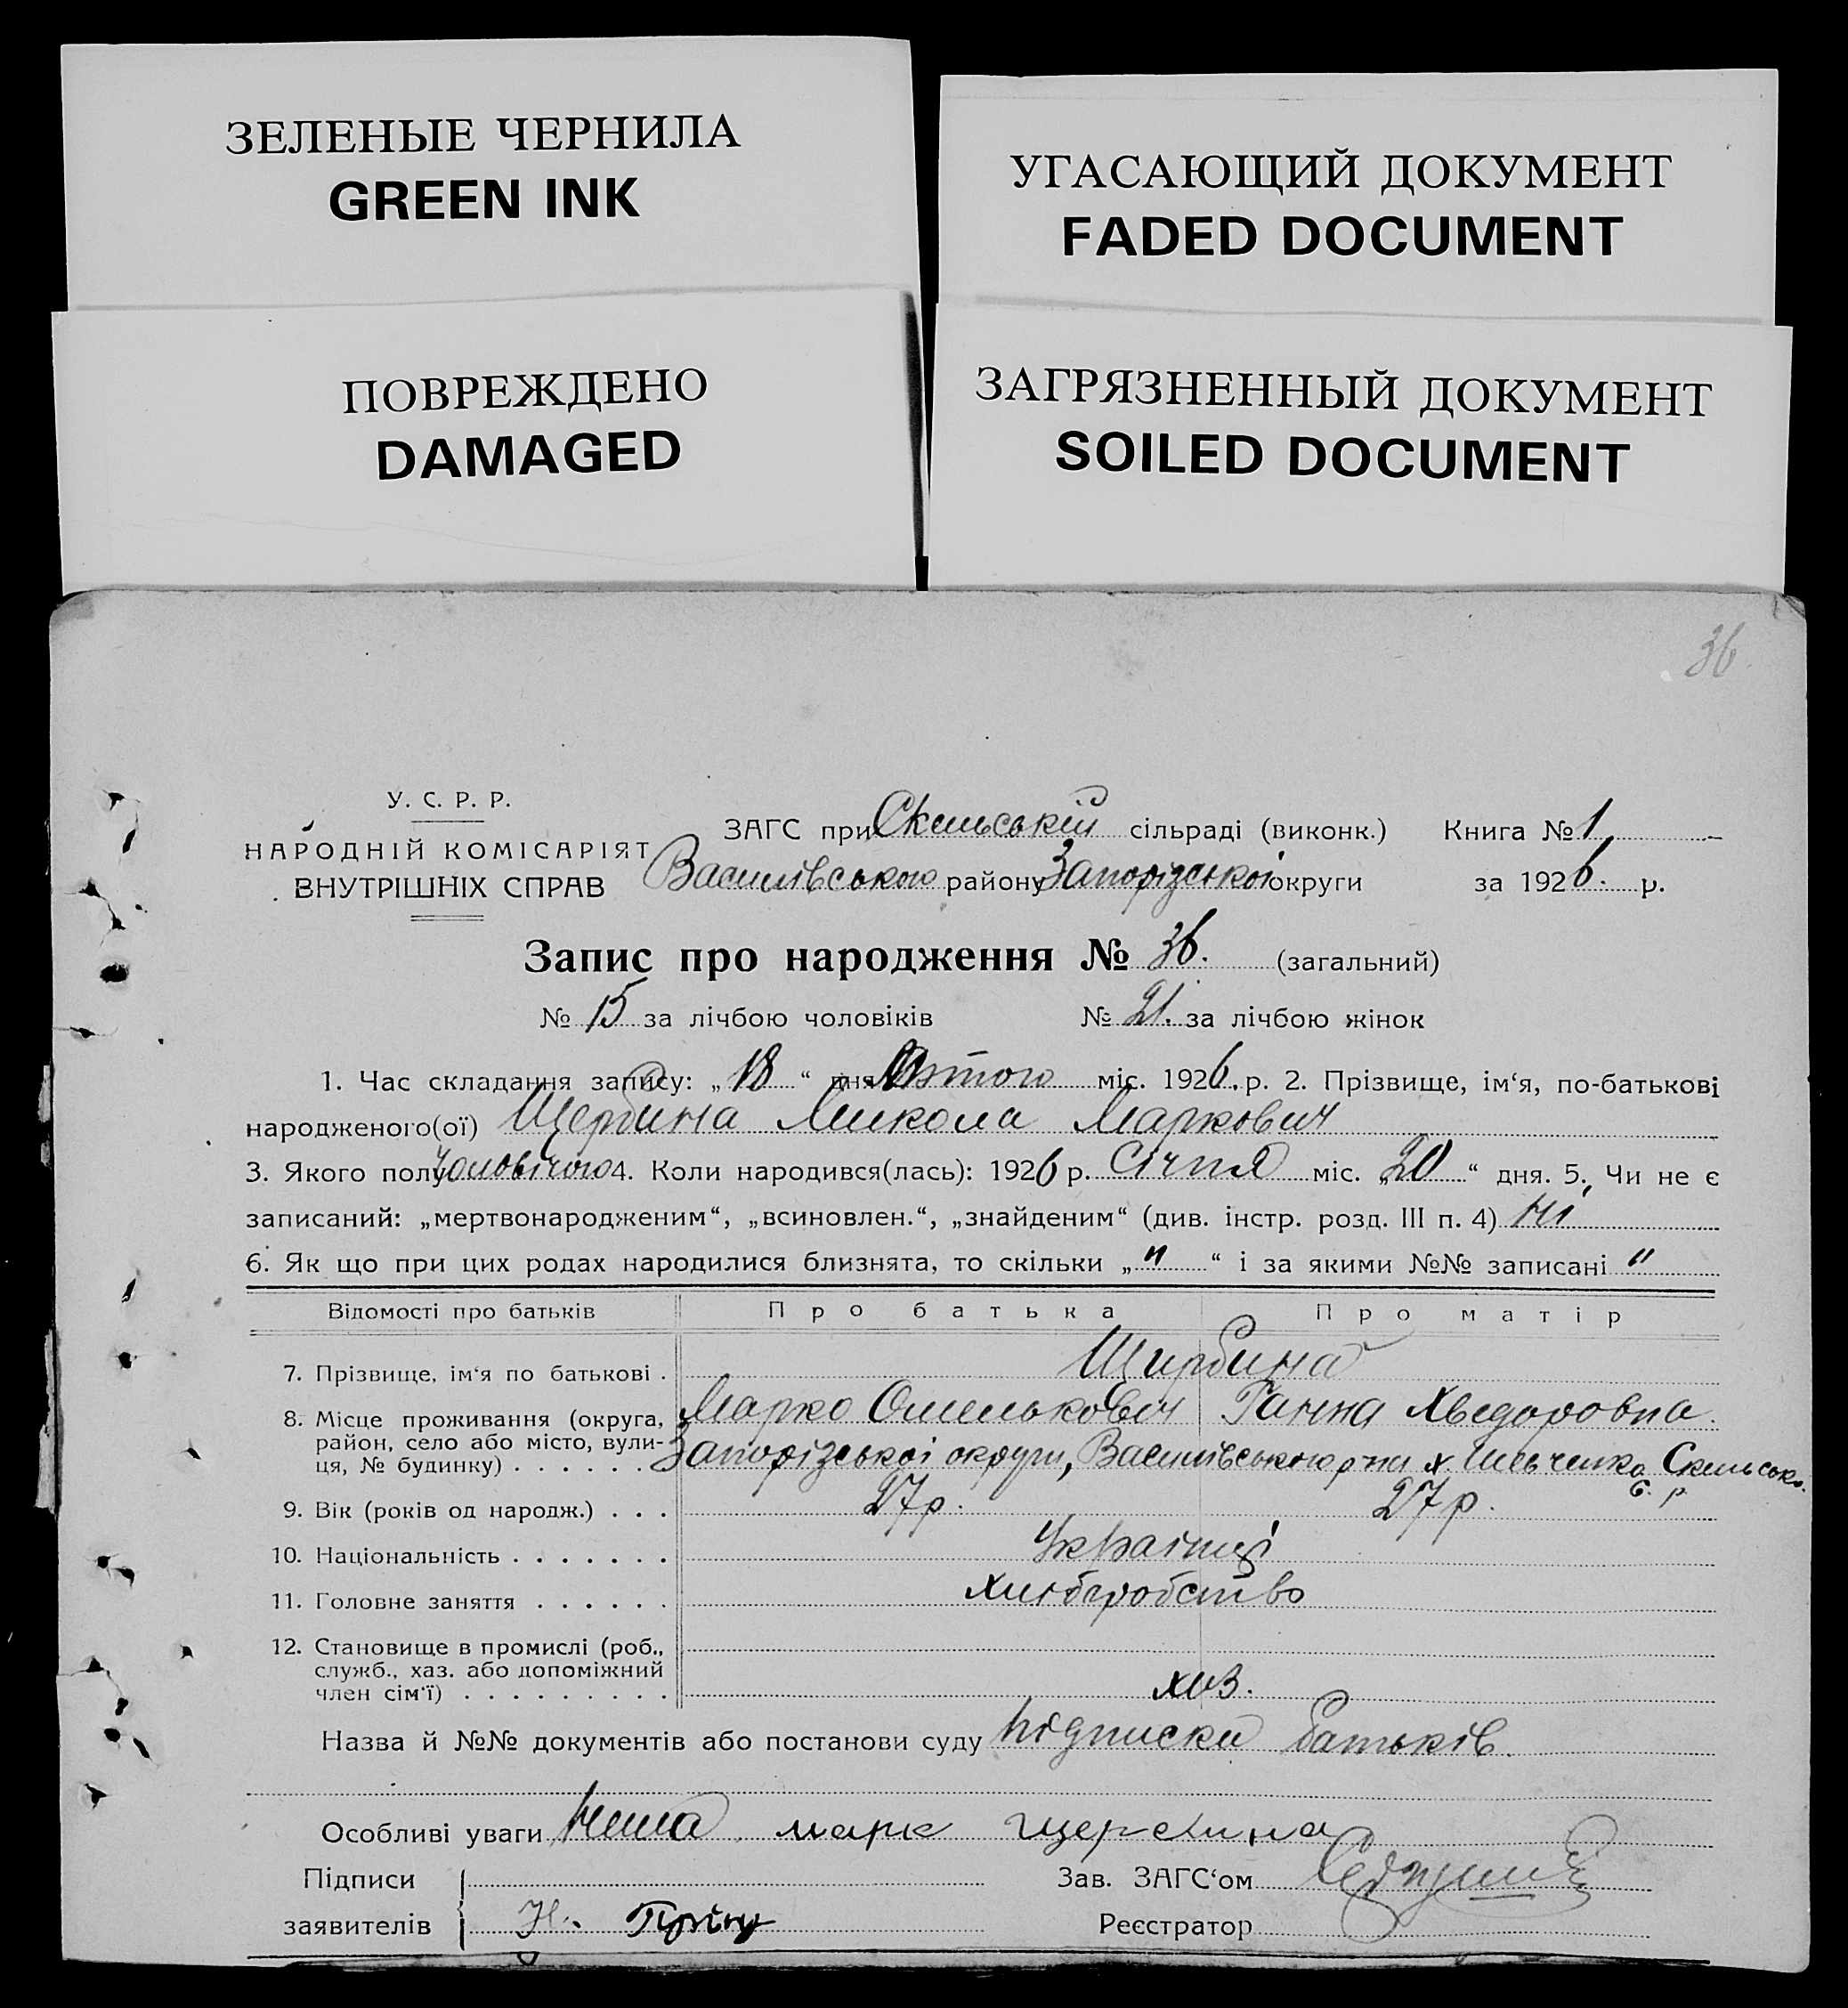 ЗЕЛЕНЫЕ ЧЕРНИЛА
GREEN INK
УГАСАЮЩИЙ ДОКУМЕНТ
FADED DOCUMENT
ПОВРЕЖДЕНО
DAMAGED
ЗАГРЯЗНЕННЫЙ ДОКУМЕНТ
SOILED DOCUMENT
36
У. С. Р. Р.
НАРОДНІЙ КОМІСАРІЯТ
ВНУТРІШНІХ СПРАВ
ЗАГС при Скельській сільраді (виконк.) Книга № 1
Василівського району Запорізської округи за 1926. р.
Запис про народження № 36. (загальний)
№ 15 за лічбою чоловіків № 21. за лічбою жінок
1. Час складання запису: „18“ дня Лютого міс. 1926. р. 2. Прізвище, ім‘я, по-батькові
народженого(ої) Щербина Микола Маркович
3. Якого полу Чоловічого 4. Коли народився(лась): 1926 р. Січня міс. „20“ дня. 5. Чи не є
записаний: „мертвонародженим“, „всиновлен.“, „знайденим“ (див. інстр. розд. III п. 4) Ні
6. Як що при цих родах народилися близнята, то скільки „ " “ і за якими №№ записані "
Відомості про батьків Про батька Про матір
7. Прізвище, ім‘я по батькові . Щирбина
Марко Омелькович Ганна Хведоровна.
8. Місце проживання (округа, район, село або місто, вулиця, № будинку) . . . . . . Запорізської округи, Василівського р-на х. Шевченко Скельсько.
с. р.
9. Вік (років од народж.) . . . 27 р. 27 р.
10. Національність . . . . . . . Українці
11. Головне заняття . . . . . . хліборобство
12. Становище в промислі (роб.,
служб., хаз. або допоміжний
член сім‘ї) . . . . . . . . . хоз.
Назва й №№ документів або постанови суду підписки батьків.
Особливі уваги Нема. марк щербина
Підписи
заявителів Н.
Зав. ЗАГС‘ом
Реєстратор